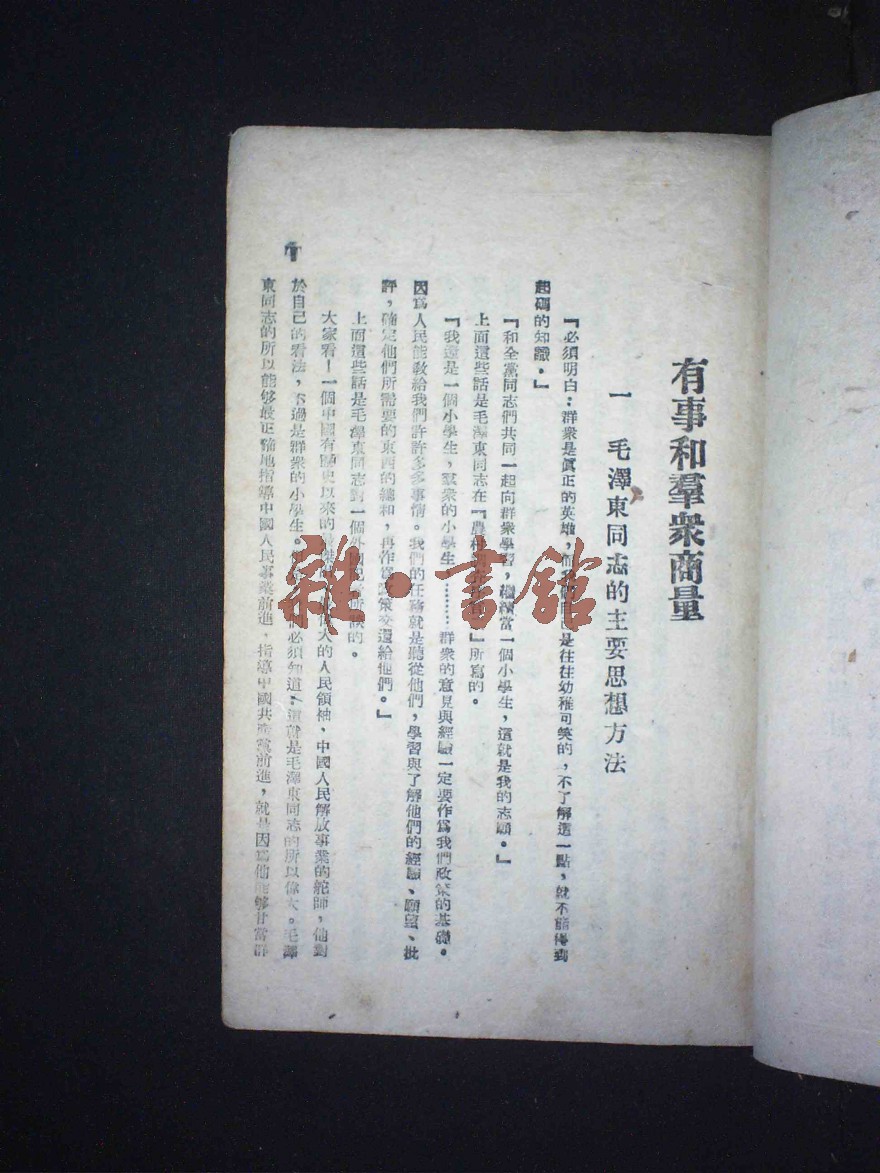 有事和羣衆商量
一　毛澤東同志的主要思想方法
『必須明白：群衆是眞正的英雄，而是往往幼稚可笑的，不了解這一點，就不能得到
起碼的知識。』
『和全黨同志們共同一起向群衆學習，繼續當一個小學生，這就是我的志願。』
上面這些話是毛澤東同志在『農村』所寫的。
『我還是一個小學生，羣衆的小學生………群衆的意見與經驗一定要作爲我們政策的基礎。
因爲人民能敎給我們許許多多事情。我們的任務就是聽從他們，學習與了解他們的經驗、願望、批
評，確定他們所需要的東西的總和，再作爲政策交還給他們。』
上面這些話是毛澤東同志對一個外國所談的。
大家看！一個中國有歷史以來的偉大的人民領袖，中國人民解放事業的舵師，他對
於自己的看法，不過是群衆的小學生。們必須知道：這就是毛澤東同志的所以偉大。毛澤
東同志的所以能够最正確地指導中國人民事業前進，指導中國共產黨前進，就是因爲他能够甘當群
雜·書館